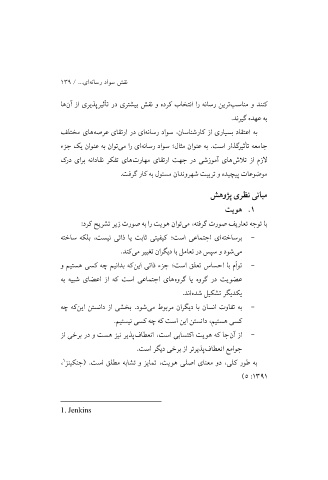 نقش سواد رسانه‌ای... / ۱۳۹
کنند و مناسب‌ترین رسانه را انتخاب کرده و نقش بیشتری در تأثیرپذیری از آن‌ها
به عهده گیرند.
به اعتقاد بسیاری از کارشناسان، سواد رسانه‌ای در ارتقای عرصه‌های مختلف
جامعه تأثیرگذار است. به عنوان مثال؛ سواد رسانه‌ای را می‌توان به عنوان یک جزء
لازم از تلاش‌های آموزشی در جهت ارتقای مهارت‌های تفکر نقادانه برای درک
موضوعات پیچیده و تربیت شهروندان مسئول به کار گرفت.
مبانی نظری پژوهش
۱. هویت
با توجه تعاریف صورت گرفته، می‌توان هویت را به صورت زیر تشریح کرد:
- برساخته‌ای اجتماعی است؛ کیفیتی ثابت یا ذاتی نیست، بلکه ساخته
می‌شود و سپس در تعامل با دیگران تغییر می‌کند.
- توأم با احساس تعلق است؛ جزء ذاتی این‌که بدانیم چه کسی هستیم و
عضویت در گروه یا گروه‌های اجتماعی است که از اعضای شبیه به
یکدیگر تشکیل شده‌اند.
- به تفاوت انسان با دیگران مربوط می‌شود. بخشی از دانستن این‌که چه
کسی هستیم، دانستن این است که چه کسی نیستیم.
- از آن‌جا که هویت اکتسابی است، انعطاف‌پذیر نیز هست و در برخی از
جوامع انعطاف‌پذیرتر از برخی دیگر است.
به طور کلی، دو معنای اصلی هویت، تمایز و تشابه مطلق است. (جنکینز۱،
۱۳۹۱: ۵)
1. Jenkins